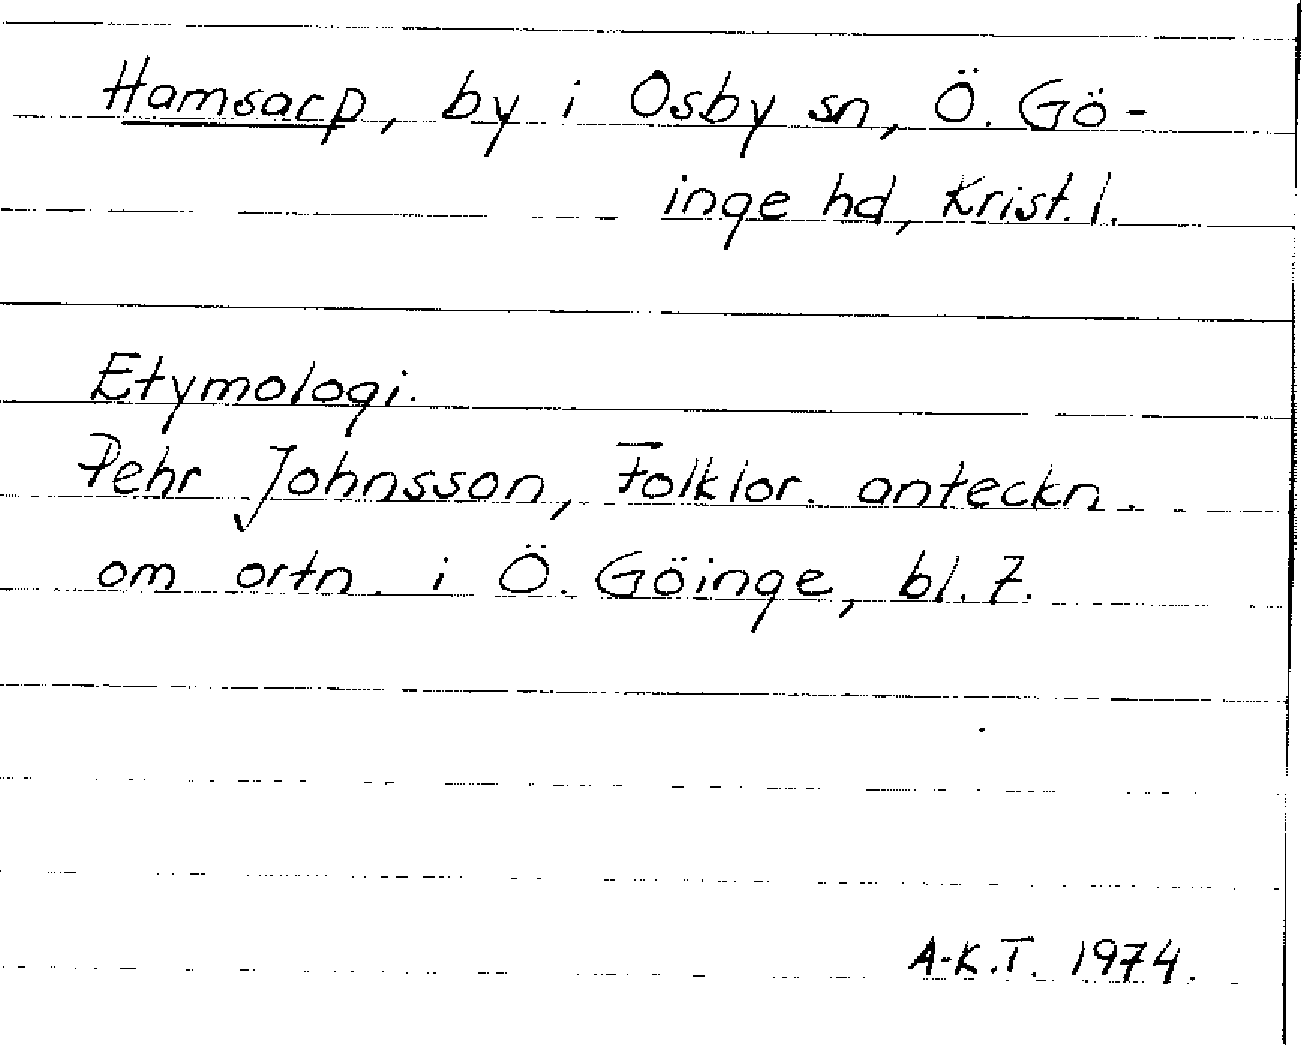 Hamsarp, by i Osby sn, Ö. Gö-
inge hd, Krist. l.
Etymologi.
Pehr Johnsson, Folklor. anteckn.
om ortn. i Ö. Göinge, bl. 7.
A-K.T. 1974.